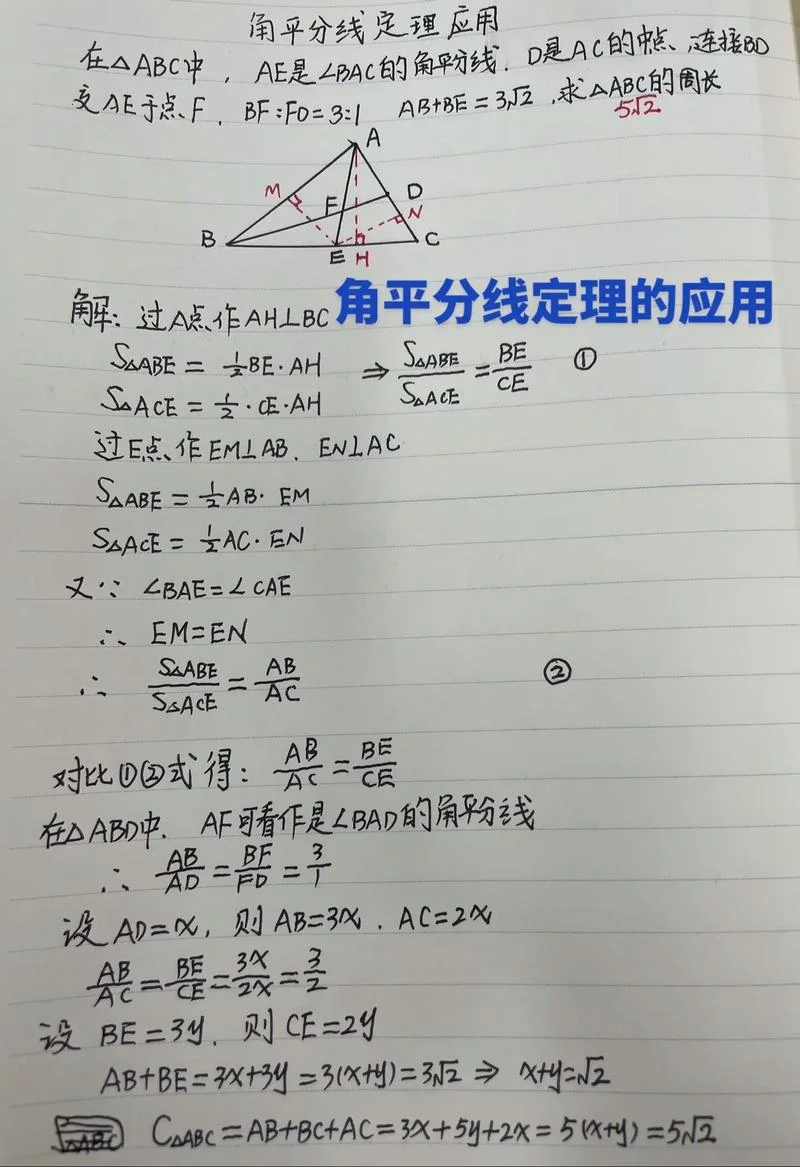 角平分线定理应用
在△ABC中，AE是∠BAC的角平分线．D是AC的中点、连接BD
交AE于点F．BF:FD=3:1 AB+BE=3√2 ,求△ABC的周长
5√2
A
M
F
D
N
B
E
H
C
解：过A点作AH⊥BC
角平分线定理的应用
S△ABE = 1/2 BE·AH ⇒ S△ABE/S△ACE = BE/CE ①
S△ACE = 1/2·CE·AH
过E点作EM⊥AB．EN⊥AC
S△ABE = 1/2 AB·EM
S△ACE = 1/2 AC·EN
又∵ ∠BAE=∠CAE
∴ EM=EN
∴ S△ABE/S△ACE = AB/AC ②
对比①②式得：AB/AC = BE/CE
在△ABD中．AF可看作是∠BAD的角平分线
∴ AB/AD = BF/FD = 3/1
设AD=x，则AB=3x．AC=2x
AB/AC = BE/CE = 3x/2x = 3/2
设 BE=3y．则CE=2y
AB+BE=3x+3y=3(x+y)=3√2 ⇒ x+y=√2
C△ABC=AB+BC+AC=3x+5y+2x=5(x+y)=5√2